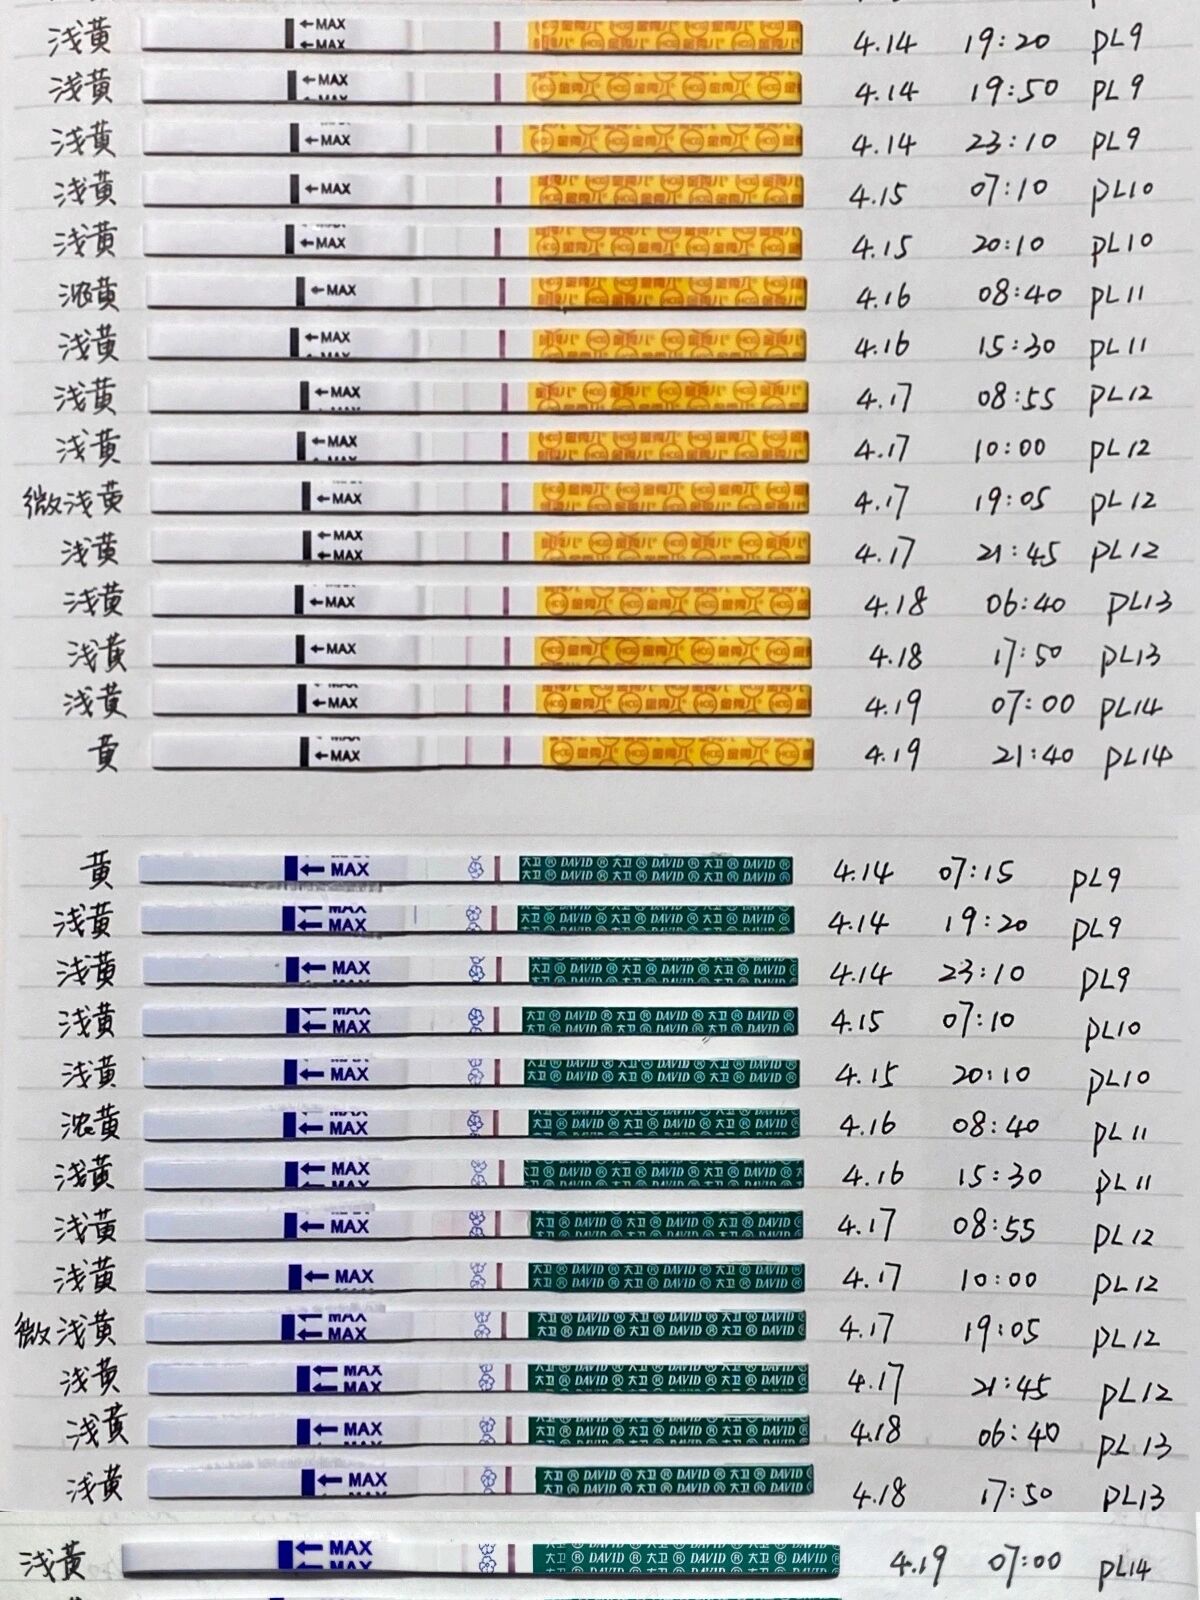 浅黄 ←MAX ←MAX HCG 金秀儿® 4.14 19:20 PL9
浅黄 ←MAX HCG 金秀儿® 4.14 19:50 PL9
浅黄 ←MAX HCG 金秀儿® 4.14 23:10 PL9
浅黄 ←MAX HCG 金秀儿® 4.15 07:10 PL10
浅黄 ←MAX HCG 金秀儿® 4.15 20:10 PL10
浓黄 ←MAX HCG 金秀儿® 4.16 08:40 PL11
浅黄 ←MAX HCG 金秀儿® 4.16 15:30 PL11
浅黄 ←MAX HCG 金秀儿® 4.17 08:55 PL12
浅黄 ←MAX HCG 金秀儿® 4.17 10:00 PL12
微浅黄 ←MAX HCG 金秀儿® 4.17 19:05 PL12
浅黄 ←MAX ←MAX HCG 金秀儿® 4.17 21:45 PL12
浅黄 ←MAX HCG 金秀儿® 4.18 06:40 PL13
浅黄 ←MAX HCG 金秀儿® 4.18 17:50 PL13
浅黄 ←MAX HCG 金秀儿® 4.19 07:00 PL14
黄 ←MAX HCG 金秀儿® 4.19 21:40 PL14
黄 ←MAX 大卫® DAVID® 4.14 07:15 PL9
浅黄 ←MAX 大卫® DAVID® 4.14 19:20 PL9
浅黄 ←MAX 大卫® DAVID® 4.14 23:10 PL9
浅黄 ←MAX 大卫® DAVID® 4.15 07:10 PL10
浅黄 ←MAX 大卫® DAVID® 4.15 20:10 PL10
浓黄 ←MAX 大卫® DAVID® 4.16 08:40 PL11
浅黄 ←MAX 大卫® DAVID® 4.16 15:30 PL11
浅黄 ←MAX 大卫® DAVID® 4.17 08:55 PL12
浅黄 ←MAX 大卫® DAVID® 4.17 10:00 PL12
微浅黄 ←MAX 大卫® DAVID® 4.17 19:05 PL12
浅黄 ←MAX ←MAX 大卫® DAVID® 4.17 21:45 PL12
浅黄 ←MAX 大卫® DAVID® 4.18 06:40 PL13
浅黄 ←MAX 大卫® DAVID® 4.18 17:50 PL13
浅黄 ←MAX 大卫® DAVID® 4.19 07:00 PL14